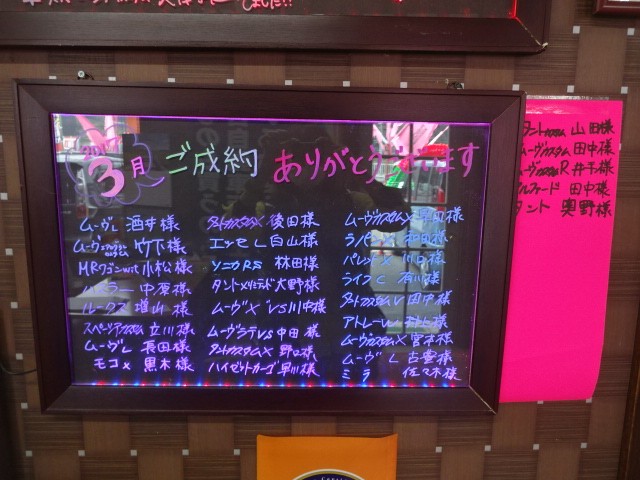 2017
3月 ご成約 ありがとうございます
ムーヴL 酒井様
竹下様
MRワゴンwit 小松様
中原様
ルークス 増山様
スペーシアカスタム 立川様
ムーヴL 長田様
モコX 黒木様
タントカスタムX 後田様
エッセL 白山様
ソニカRS 林田様
大野様
ムーヴX VS川中様
中田様
タントカスタムX 野口様
ハイゼットカーゴ 早川様
ムーヴカスタムX
パレットX 川口様
ライフC 石川様
タントカスタムV 田中様
アトレー
ムーヴカスタムX 宮本様
ムーヴL 古豊様
ミラ 佐々木様
タントカスタム 山田様
ムーヴカスタム 田中様
ムーヴカスタムR 井手様
アルファード 田中様
タント 奥野様